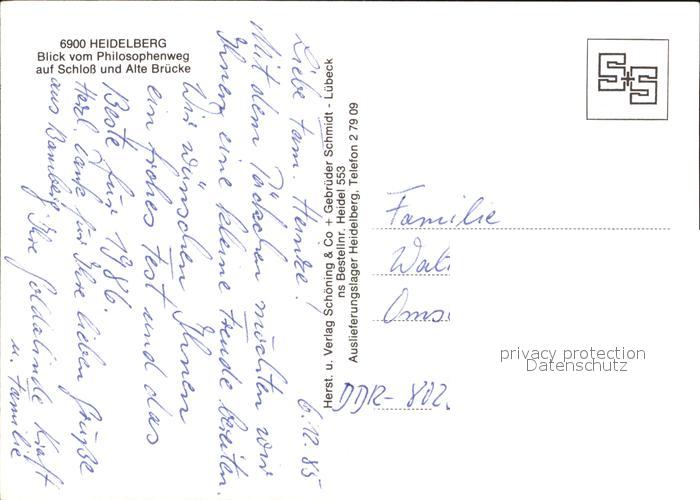 6900 HEIDELBERG
Blick vom Philosophenweg
auf Schloß und Alte Brücke
6.12.85
Liebe Fam. Heinze!
Mit dem Päckchen möchten wir
Ihnen eine kleine Freude bereiten.
Wir wünschen Ihnen
ein frohes Fest und das
Beste für 1986.
Herzl. Dank für Ihre lieben Grüße
aus Bamberg Ihre Goldalinde Kraft
u. Familie
Herst. u. Verlag Schöning & Co + Gebrüder Schmidt - Lübeck
ns Bestellnr. Heidel 553
Auslieferungslager Heidelberg, Telefon 2 79 09
S+S
Familie
Walt
Oms
DDR- 802
privacy protection
Datenschutz